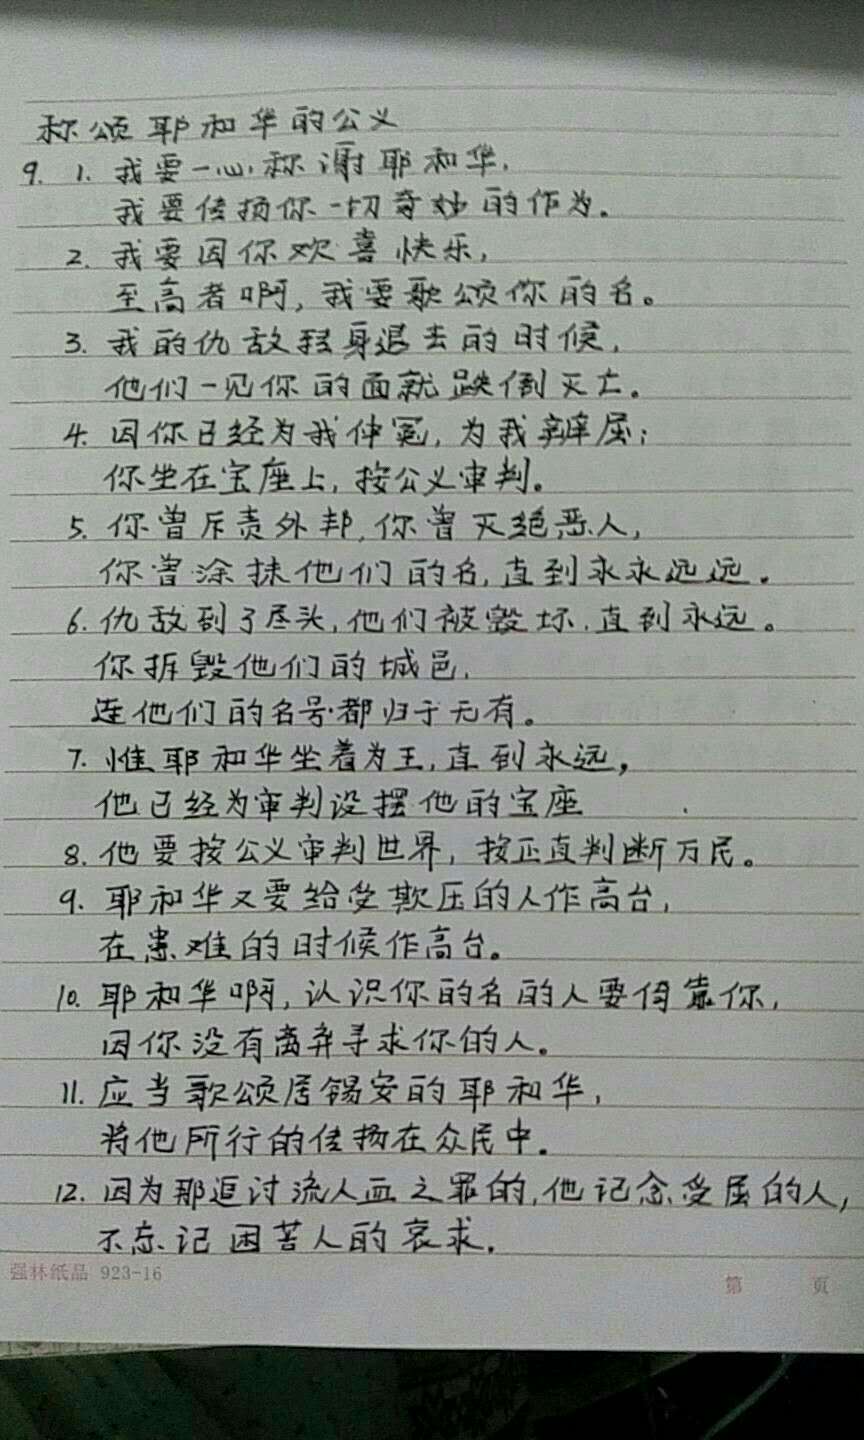 称颂耶和华的公义
9. 1. 我要一心称谢耶和华,
我要传扬你一切奇妙的作为。
2. 我要因你欢喜快乐,
至高者啊, 我要歌颂你的名。
3. 我的仇敌转身退去的时候,
他们一见你的面就跌倒灭亡。
4. 因你已经为我伸冤, 为我辨屈;
你坐在宝座上, 按公义审判。
5. 你曾斥责外邦, 你曾灭绝恶人,
你曾涂抹他们的名, 直到永永远远。
6. 仇敌到了尽头, 他们被毁坏, 直到永远。
你拆毁他们的城邑,
连他们的名号都归于无有。
7. 惟耶和华坐着为王, 直到永远,
他已经为审判设摆他的宝座
8. 他要按公义审判世界, 按正直判断万民。
9. 耶和华又要给受欺压的人作高台,
在患难的时候作高台。
10. 耶和华啊, 认识你的名的人要倚靠你,
因你没有离弃寻求你的人。
11. 应当歌颂居锡安的耶和华,
将他所行的传扬在众民中。
12. 因为那追讨流人血之罪的, 他记念受屈的人,
不忘记困苦人的哀求.
强林纸品 923-16
第 页